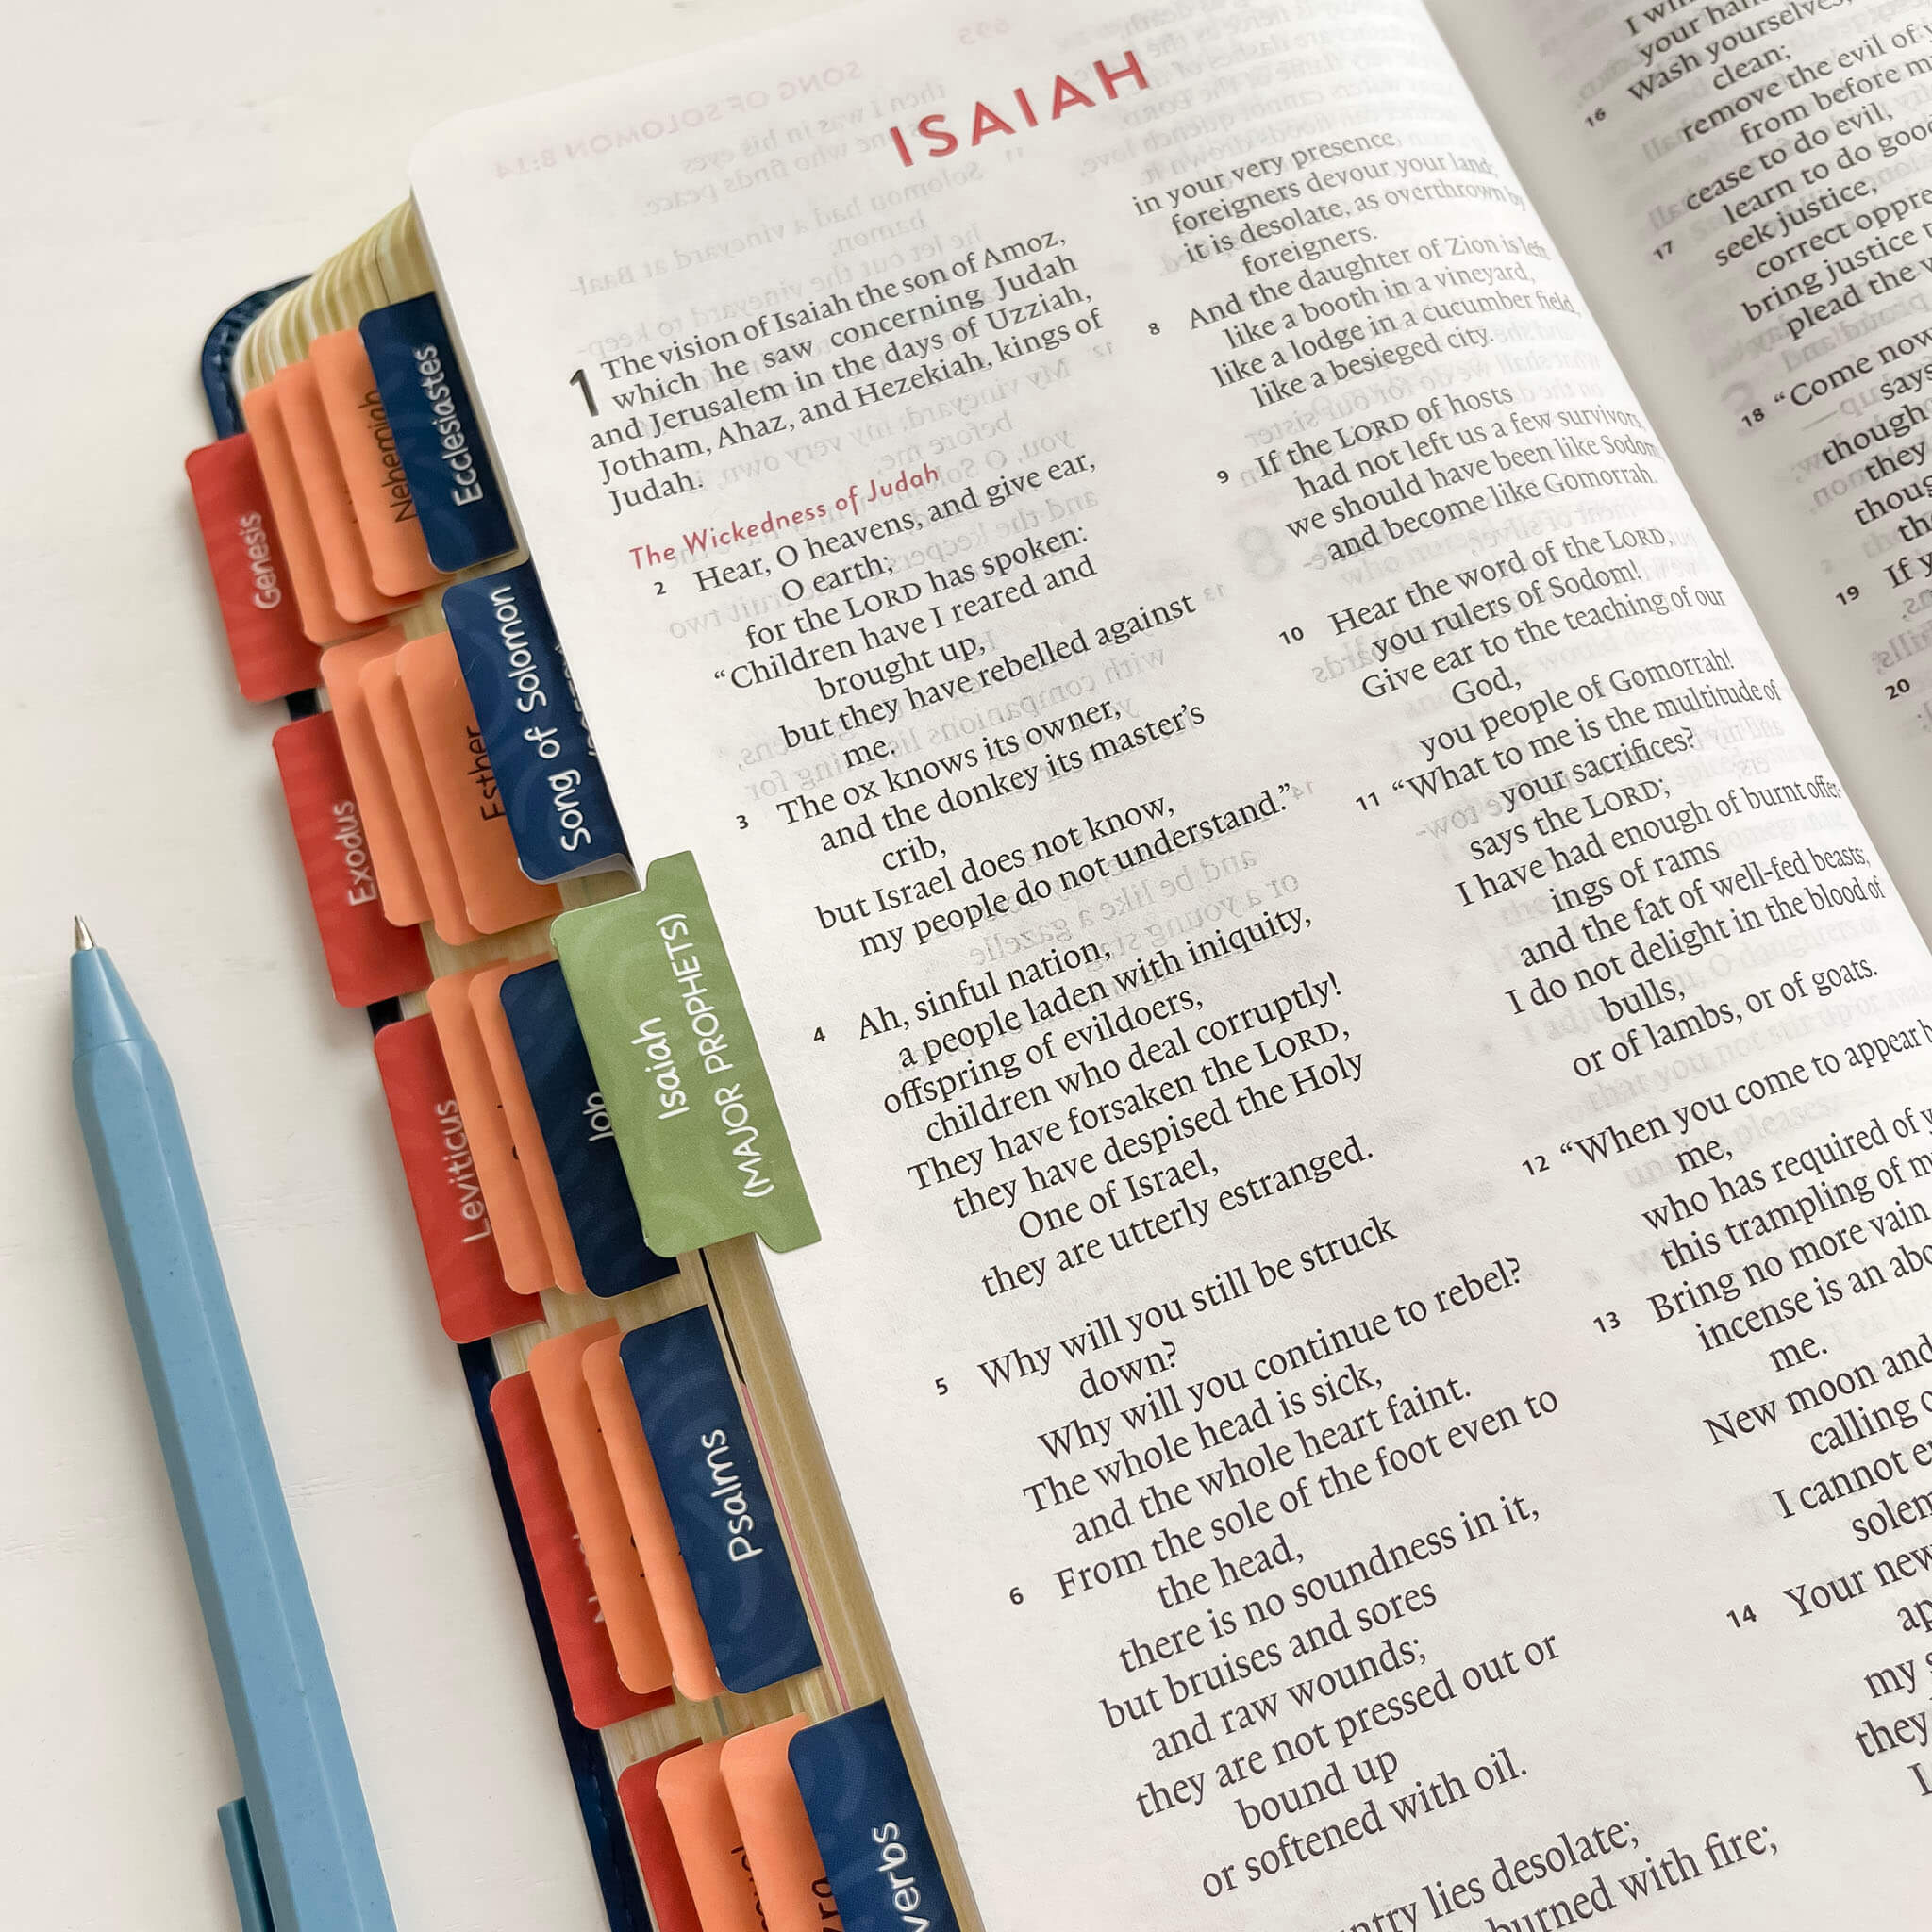 ISAIAH
1 The vision of Isaiah the son of Amoz,
which he saw concerning Judah
and Jerusalem in the days of Uzziah,
Jotham, Ahaz, and Hezekiah, kings of
Judah.
The Wickedness of Judah
2 Hear, O heavens, and give ear,
O earth;
for the LORD has spoken:
“Children have I reared and
brought up,
but they have rebelled against
me.
3 The ox knows its owner,
and the donkey its master’s
crib,
but Israel does not know,
my people do not understand.”
4 Ah, sinful nation,
a people laden with iniquity,
offspring of evildoers,
children who deal corruptly!
They have forsaken the LORD,
they have despised the Holy
One of Israel,
they are utterly estranged.
5 Why will you still be struck
down?
Why will you continue to rebel?
The whole head is sick,
and the whole heart faint.
6 From the sole of the foot even to
the head,
there is no soundness in it,
but bruises and sores
and raw wounds;
they are not pressed out or
bound up
or softened with oil.
lies desolate;
burned with fire;
in your very presence,
foreigners devour your land;
it is desolate, as overthrown by
foreigners.
8 And the daughter of Zion is left
like a booth in a vineyard,
like a lodge in a cucumber field,
like a besieged city.
9 If the LORD of hosts
had not left us a few survivors,
we should have been like Sodom,
and become like Gomorrah.
10 Hear the word of the LORD,
you rulers of Sodom!
Give ear to the teaching of our
God,
you people of Gomorrah!
11 “What to me is the multitude of
your sacrifices?
says the LORD;
I have had enough of burnt offer-
ings of rams
and the fat of well-fed beasts;
I do not delight in the blood of
bulls,
or of lambs, or of goats.
12 “When you come to appear
me,
who has required of
this trampling of
13 Bring no more vain
incense is an
me.
New moon and
calling
I cannot
14 Your
my
they
I
I
your
16 Wash yourselves,
clean;
remove the evil of
from before
cease to do evil,
17 learn to do
seek justice,
correct
bring justice
plead the
18 “Come now
says
though
they
19 If
20
Genesis
Exodus
Leviticus
Nehemiah
Esther
Job
Psalms
Ecclesiastes
Song of Solomon
Isaiah
(MAJOR PROPHETS)